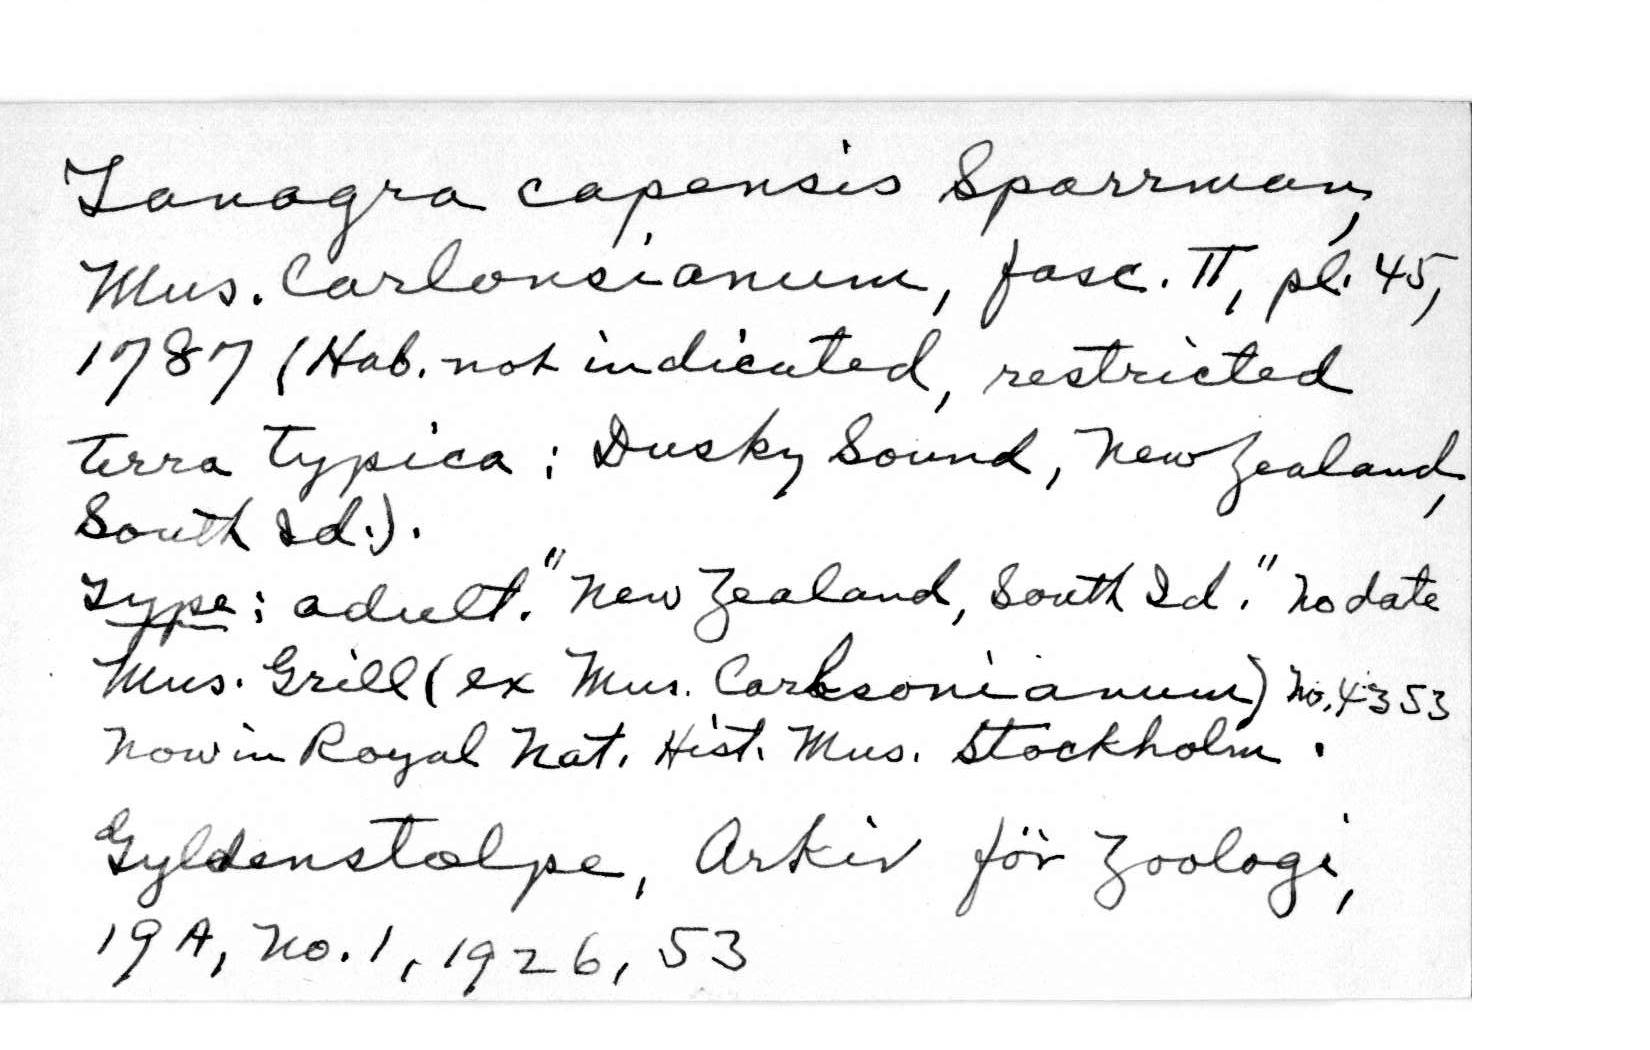 Tanagra capensis Sparrman,
Mus. Carlonsianum, fasc. II, pl. 45,
1787 (Hab. not indicated, restricted
terra typica : Dusky Sound, New Zealand,
South Id.).
Type : adult. "New Zealand, South Id." No date
Mus. Grill (ex Mus. Carlsonianum) No. 4353
Now in Royal Nat. Hist. Mus. Stockholm.
Gyldenstolpe, Arkiv för Zoologi,
19A, No. 1, 1926, 53